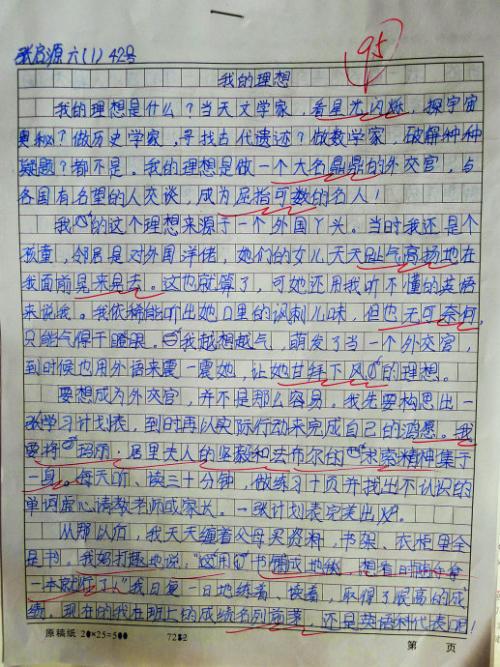 张启源 六(1) 42号
95
我的理想
我的理想是什么？当天文学家，看星光闪烁，探宇宙
奥秘？做历史学家，寻找古代遗迹？做数学家，破解种种
疑题？都不是。我的理想是做一个大名鼎鼎的外交官，与
各国有名望的人交谈，成为屈指可数的名人！
我的这个理想来源于一个外国丫头。当时我还是个
孩童，邻居是对外国洋佬，她们的女儿天天趾气高扬地在
我面前晃来晃去。这也就算了，可她还用我听不懂的英语
来说我。我依稀能听出她口里的讽刺儿味，但也无可奈何，
只能气得干瞪眼。我越想越气，萌发了当一个外交官，
到时候也用外语来震一震她，让她甘拜下风的理想。
要想成为外交官，并不是那么容易，我先要构思出一
张学习计划表，到时再以实际行动来完成自己的鸿愿。我
要将玛丽·居里夫人的坚毅和法布尔的求索精神集于
一身。每天听、读三十分钟，做练习十页并找出不认识的
单词虚心请教老师或家长。一张计划表完美出炉。
从那以后，我天天缠着父母买资料，书架、衣柜里全
是书。我妈打趣地说，“这用书铺成地毯，想看时随手拿
一本就行了。”我日复一日地练着、读着，取得了很高的成
绩，现在的我在班上的成绩名列前茅，还是英语科代表呢！
原稿纸 20×25=500 第 页